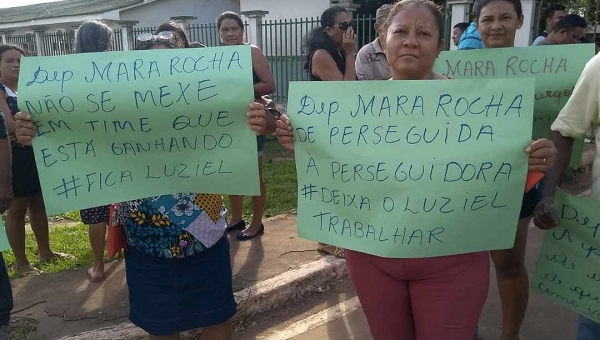 Dep MARA ROCHA
NÃO SE MEXE
EM TIME QUE
ESTÁ GANHANDO
#FICA LUZIEL
Dep MARA ROCHA
DE PERSEGUIDA
A PERSEGUIDORA
#DEIXA O LUZIEL
TRABALHAR
MARA ROCHA